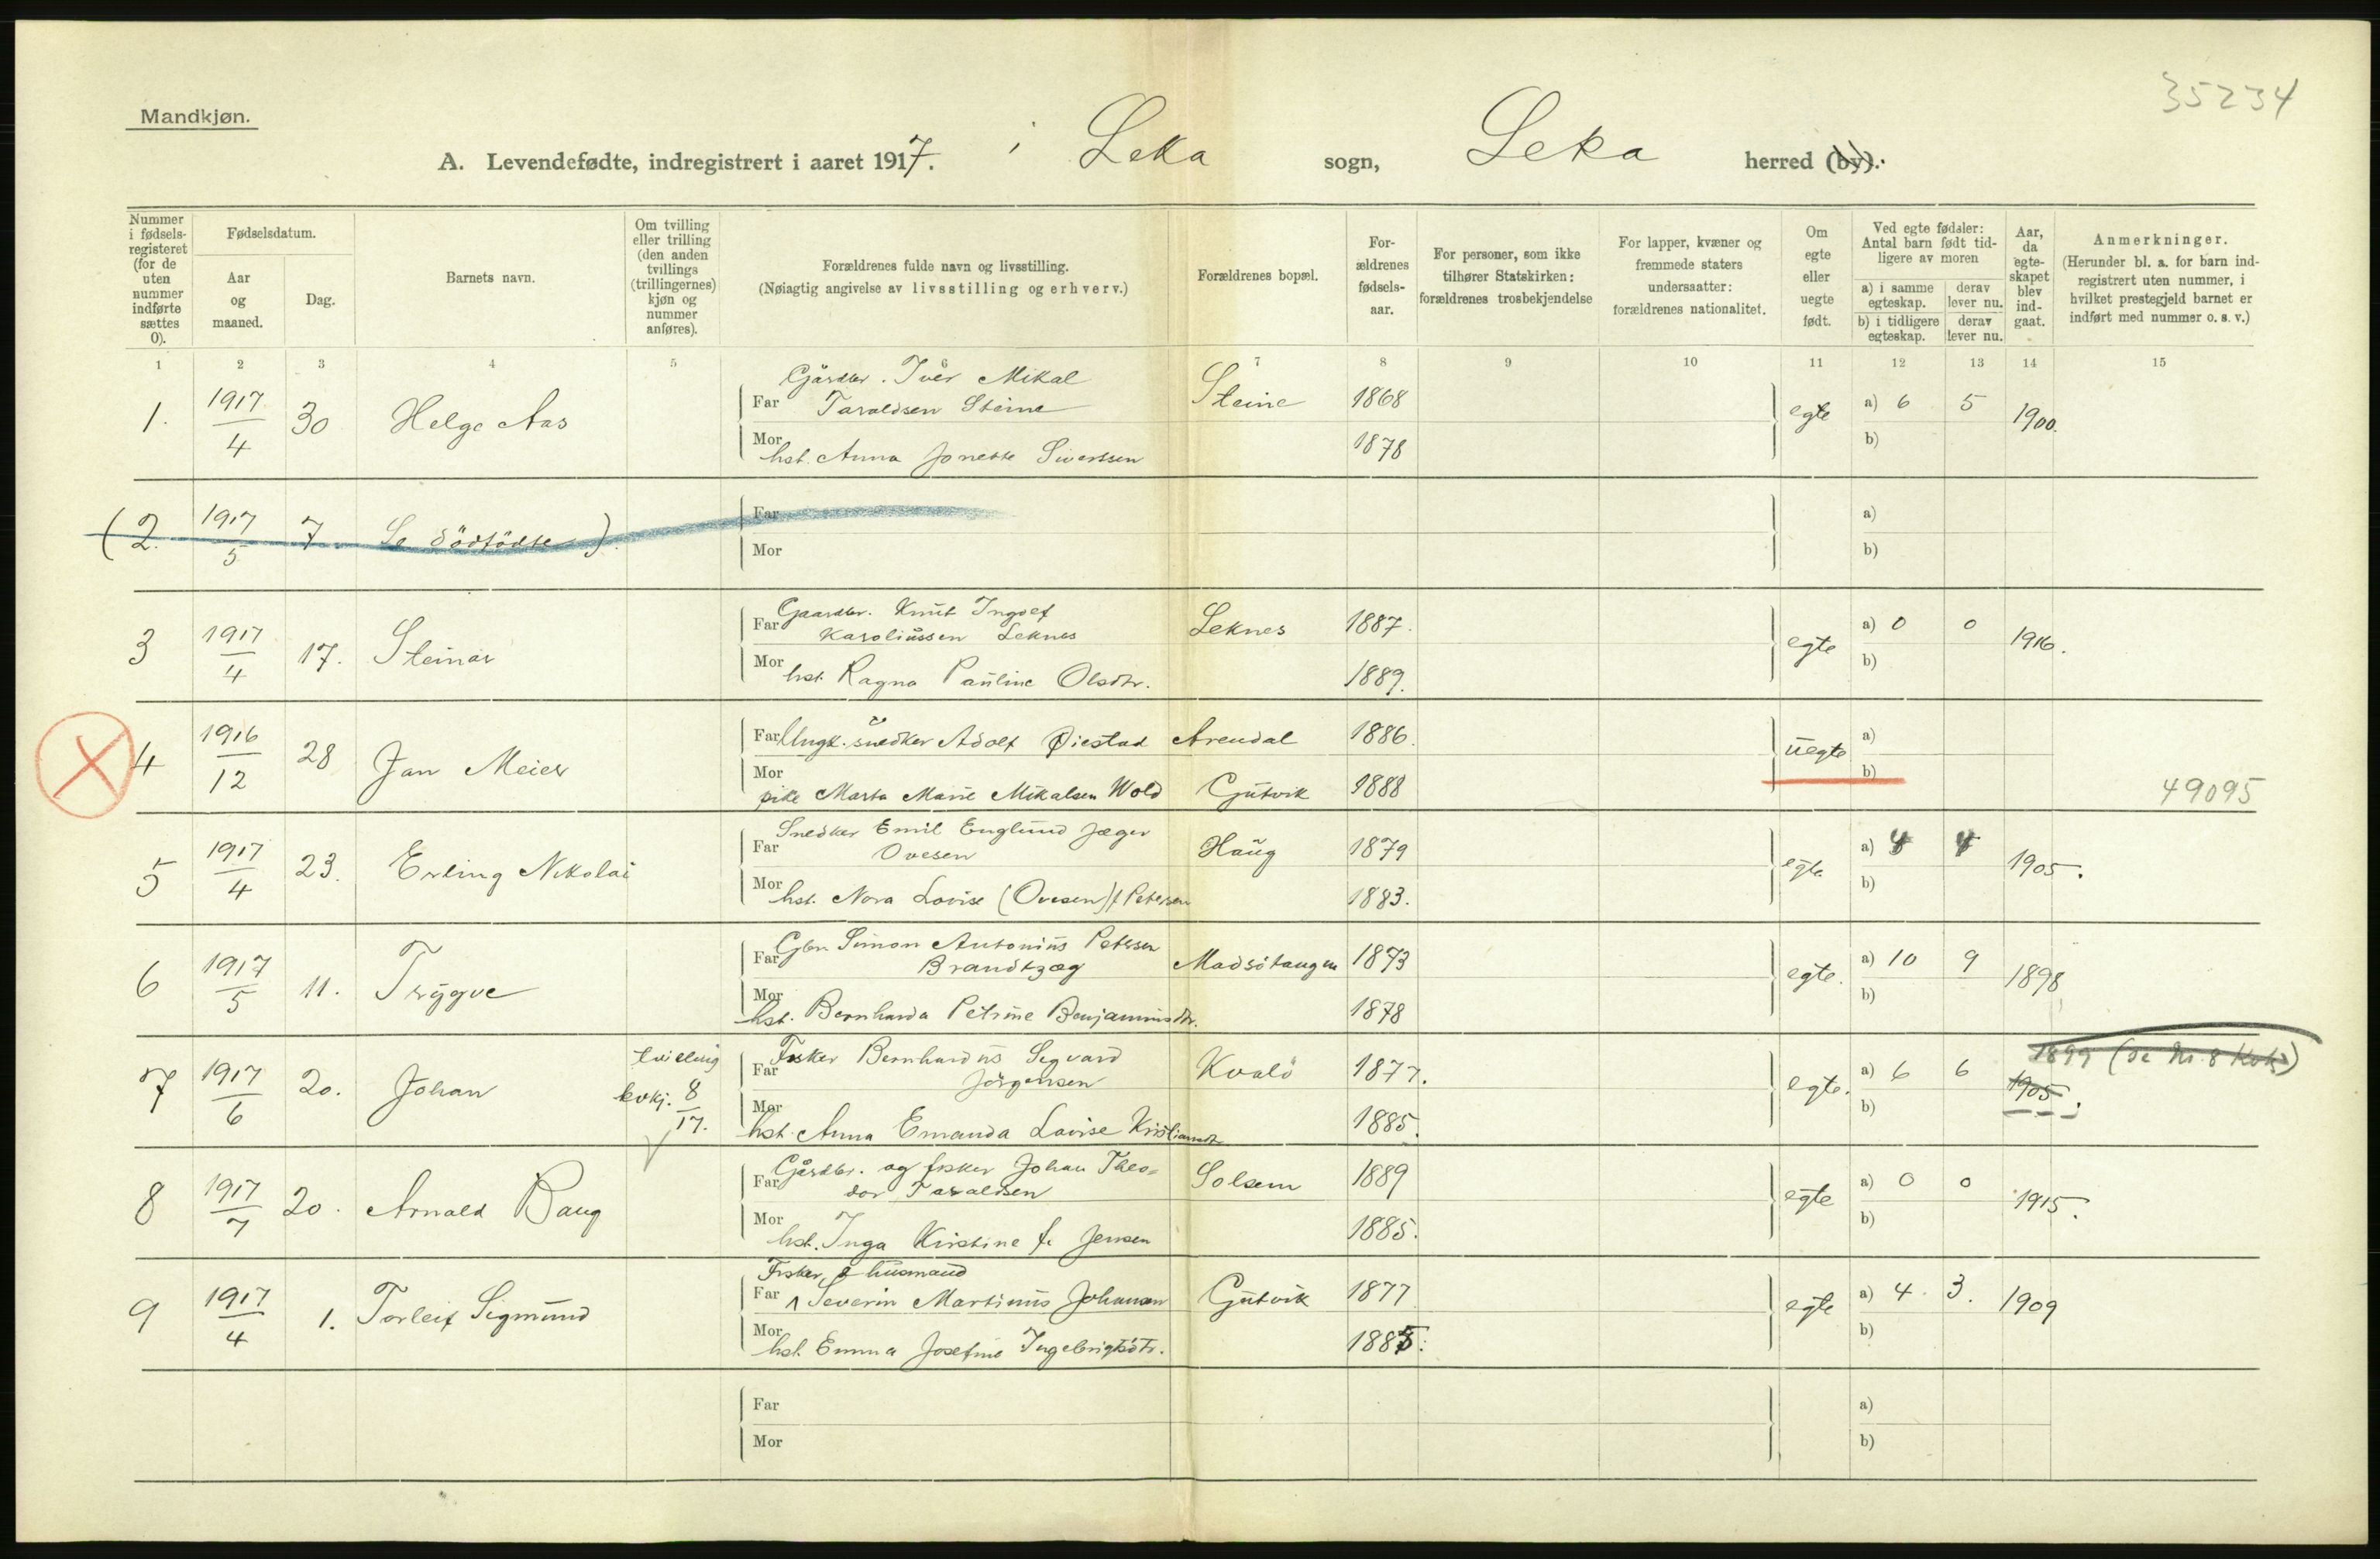 35234
Mandkjøn.
A. Levendefødte, indregistrert i aaret 1917. i Leka sogn, Leka herred (by).
Nummer i fødsels-registeret (for de uten nummer indførte sættes 0).
Fødselsdatum.
Aar og maaned.
Dag.
Barnets navn.
Om tvilling eller trilling (den anden tvillings (trillingernes) kjøn og nummer anføres).
Forældrenes fulde navn og livsstilling.
(Nøiagtig angivelse av livsstilling og erhverv.)
Forældrenes bopæl.
For-ældrenes fødsels-aar.
For personer, som ikke tilhører Statskirken: forældrenes trosbekjendelse
For lapper, kvæner og fremmede staters undersaatter: forældrenes nationalitet.
Om egte eller uegte født.
Ved egte fødsler: Antal barn født tid-ligere av moren
a) i samme egteskap. derav lever nu.
b) i tidligere egteskap. derav lever nu.
Aar, da egte-skapet blev ind-gaat.
Anmerkninger.
(Herunder bl. a. for barn ind-registrert uten nummer, i hvilket prestegjeld barnet er indført med nummer o. s. v.)
1 2 3 4 5 6 7 8 9 10 11 12 13 14 15
1. 1917/4 30 Helge Aas
Gårdbr. Iver Mikal
Far Taraldsen Steine Steine 1868 egte a) 6 5 1900.
Mor hst. Anna Jonette Sivertsen 1878 b)
(2. 1917/5 7 Se dödfödte).
Far a)
Mor b)
3 1917/4 17. Steinar
Gaardbr. Knut Ingolf
Far Karoliussen Leknes Leknes 1887. egte a) 0 0 1916.
Mor hst. Ragna Pauline Olsdtr. 1889. b)
4 1916/12 28 Jan Meier
Far Ungk. snedker Adolf Øiestad Arendal 1886. uegte a)
Mor pike Marta Marie Mikalsen Wold Gutvik 1888 b) 49095
5 1917/4 23. Erling Nikolai
Snedker Emil Englund Jæger
Far Ovesen Haug 1879 egte a) 4 4 1905.
Mor hst. Nora Lovise (Ovesen) f Petersen 1883. b)
6 1917/5 11. Trygve
Gbr. Simon Antonius Petersen
Far Brandtzæg Madsötangen 1873 egte. a) 10 9 1898
Mor hst. Bernharda Petrine Benjaminsdtr. 1878 b)
7 1917/6 20. Johan tvilling kvkj. 8/17.
Fisker Bernhardus Segvard
Far Jörgensen Kvalö 1877. egte. a) 6 6 1905. 1899 (se Nr. 8 Kvk.)
Mor hst. Anna Emanda Lovise Kristiansdtr 1885. b)
8 1917/7 20. Arnald Baug
Gårdbr. og fisker Johan Theo-
Far dor Taraldsen Solsem 1889 egte a) 0 0 1915.
Mor hst. Inga Kirstine f. Jensen 1885. b)
9 1917/4 1. Torleif Sigmund
Fisker & husmand
Far Severin Martinus Johansen Gutvik 1877 egte a) 4. 3. 1909
Mor hst. Emma Josefine Ingebrigtsdtr. 1885. b)
Far a)
Mor b)